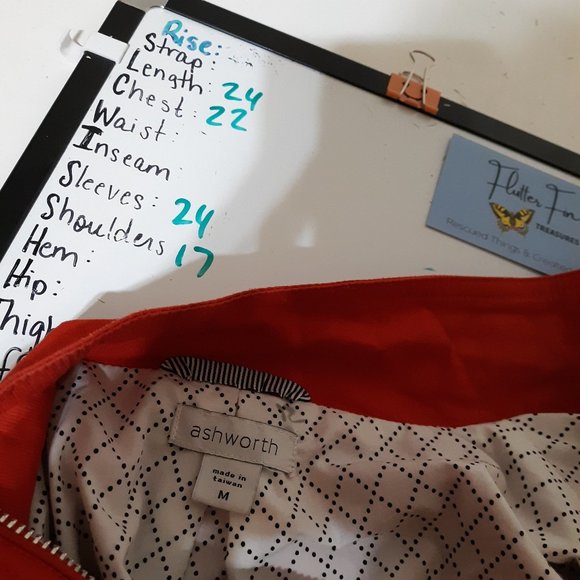 Rise:
Strap:
Length: 24
Chest: 22
Waist:
Inseam
Sleeves: 24
Shoulders 17
Hem:
Hip:
Flutter
TREASURES
Rescued Things &
ashworth
made in
taiwan
M